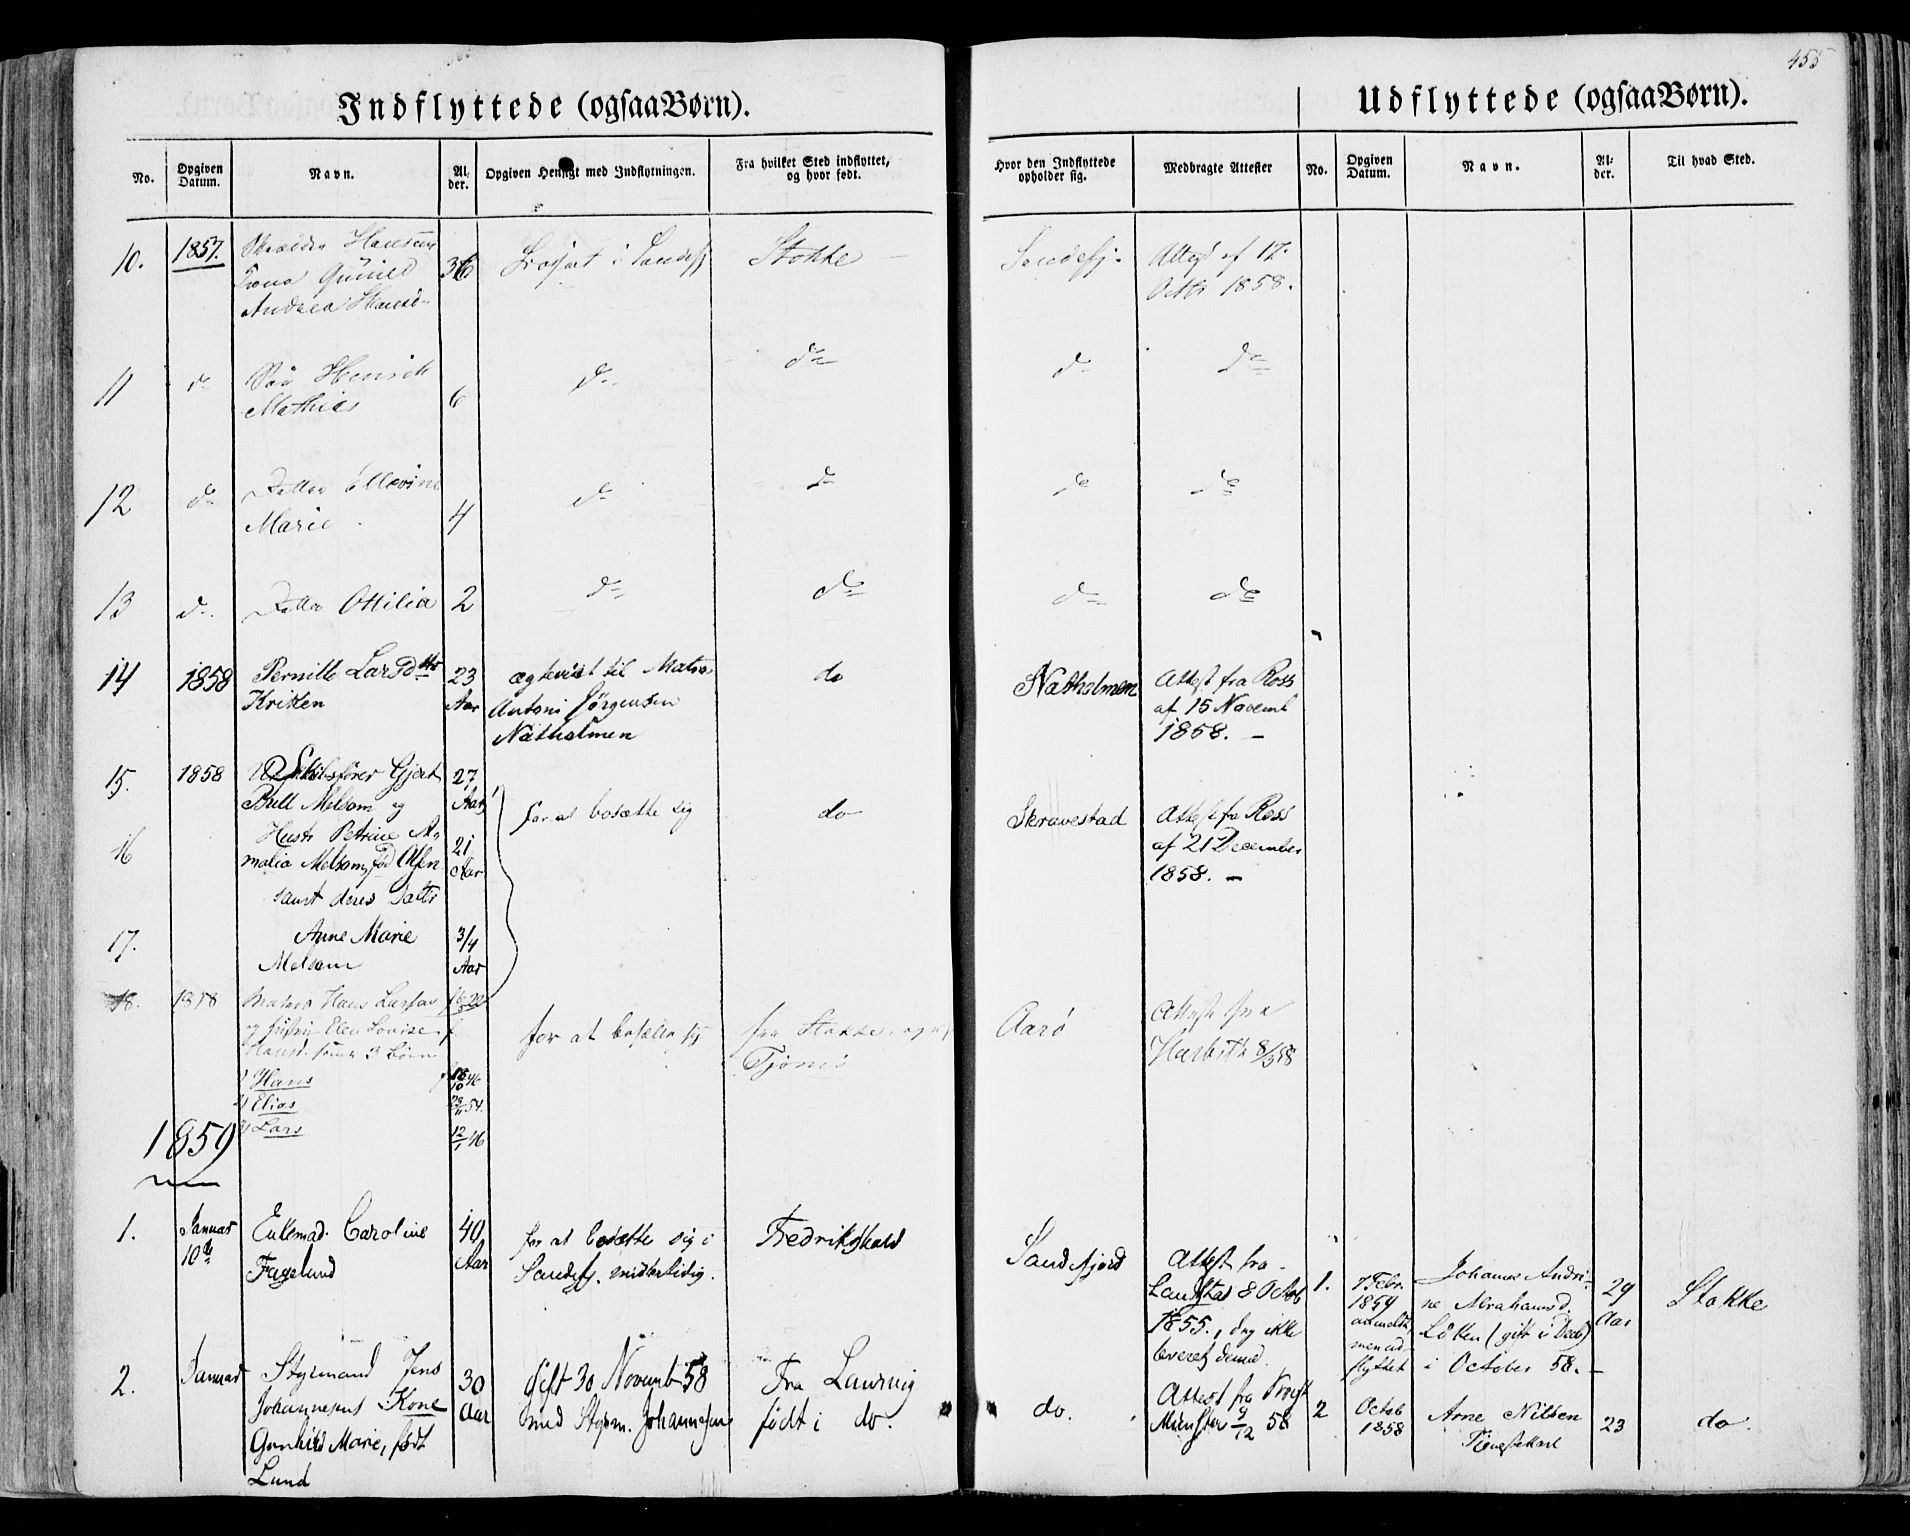 455
Indflyttede (ogsaa Børn).
Udflyttede (ogsaa Børn).
No.
Opgiven Datum.
Navn.
Alder.
Opgiven Hensigt med Indflytningen.
Fra hvilket Sted indflyttet, og hvor født.
Hvor den Indflyttede opholder sig.
Medbragte Attester
No.
Opgiven Datum.
Navn.
Alder.
Til hvad Sted.
10. 1857. Hansens 36 Bosat i Sandefj Stokke Sandefj. Attest af 17.
Kone Gunild
Andrea Hansd. Octbr 1858.
11 d Søn Henrik d do d do
Mathias 6
12 d Datter Ellevine d d d do
Marie 4
13 d Datter Ottilia 2 d do do do
14 1858 Pernille Larsdtr 23 ægteviet til Matro do Natholmen Attest fra Ross
Aar Antoni Jørgensen af 15 Novemb
Natholmen 1858. –
15. 1858 Skibsfører Gjert 27
Bull Melsom og Aar for at bosætte sig do Skravestad Attest fra Ross
16 Hustr Petrine A- 21 af 21 December
malia Melsom, fød Olsen Aar 1858. –
samt deres Datter
17. Anne Marie 3/4
Melsom Aar
18. 1858 Matros Hans Larsen
og Hustru Elen Lovise for at bosætte sig fra Stokke, Aarø Attest fra
Hansd. samt 3 Børn Tjømø 8/3 58
1) Hans
2) Elias 54.
3) Lars 12/1 46
1859
1. Januar 40 for at bosætte sig i Fredrikshald Sandefjord Attest fra
10de Enkemad. Caroline Aar Sandefj. midlertidig. Landstad 8 Octob
Fagelund 1855., dog ikke
leveret
1. 7 Febr. Johanne Andri- 29 Stokke
1859 ne Abrahamsd. Aar
anmeldt, Løkken (gift i Dech)
men ud- i October 58. –
flyttet
2. Januar Styrmand Jens 30 Gift 30 Novemb 58 Fra Laurvig do. Attest fra Provst
Johannesens Kone Aar med Styrm. Johannesen født i do. Münster 9/12 58
Gunhild Marie, født
Lund
2 Octob Arne Nilsen 23 do.
1858 Tjenestekarl